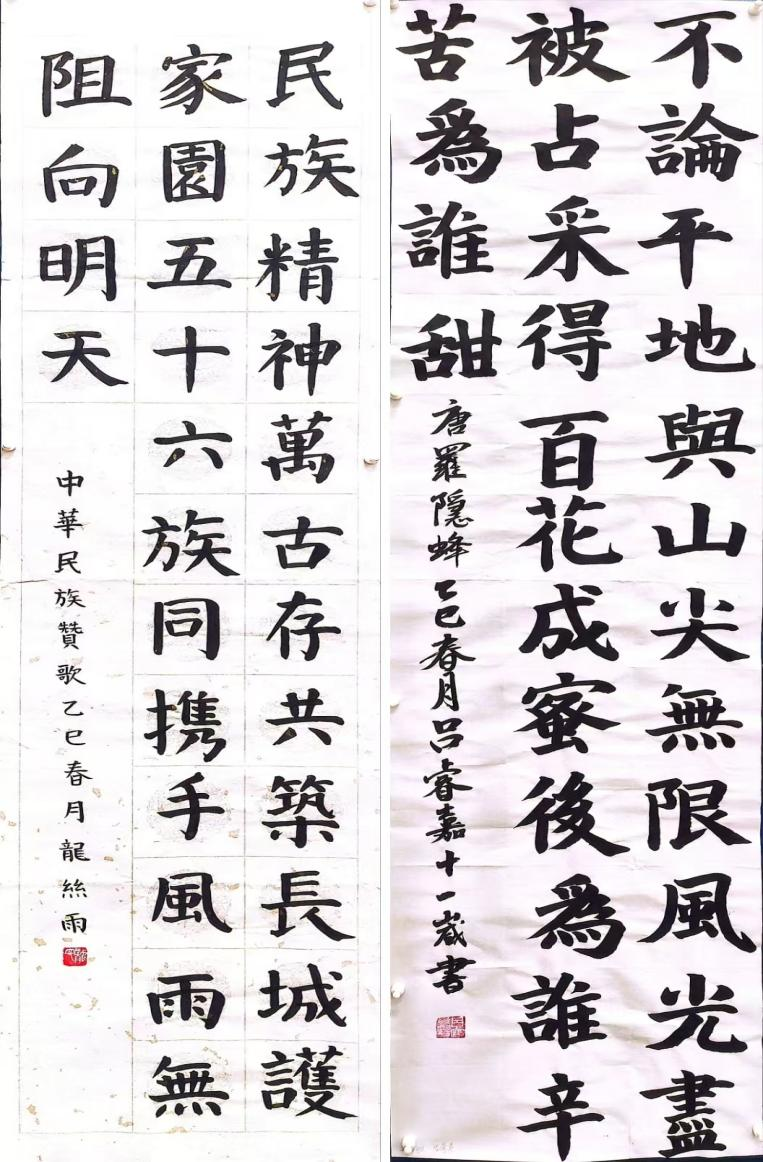 不論平地與山尖無限風光盡
被占采得百花成蜜後爲誰辛
苦爲誰甜
唐羅隐蜂乙巳春月吕睿嘉十一歲書
民族精神萬古存共築長城護
家園五十六族同携手風雨無
阻向明天
中華民族贊歌乙巳春月龍絲雨